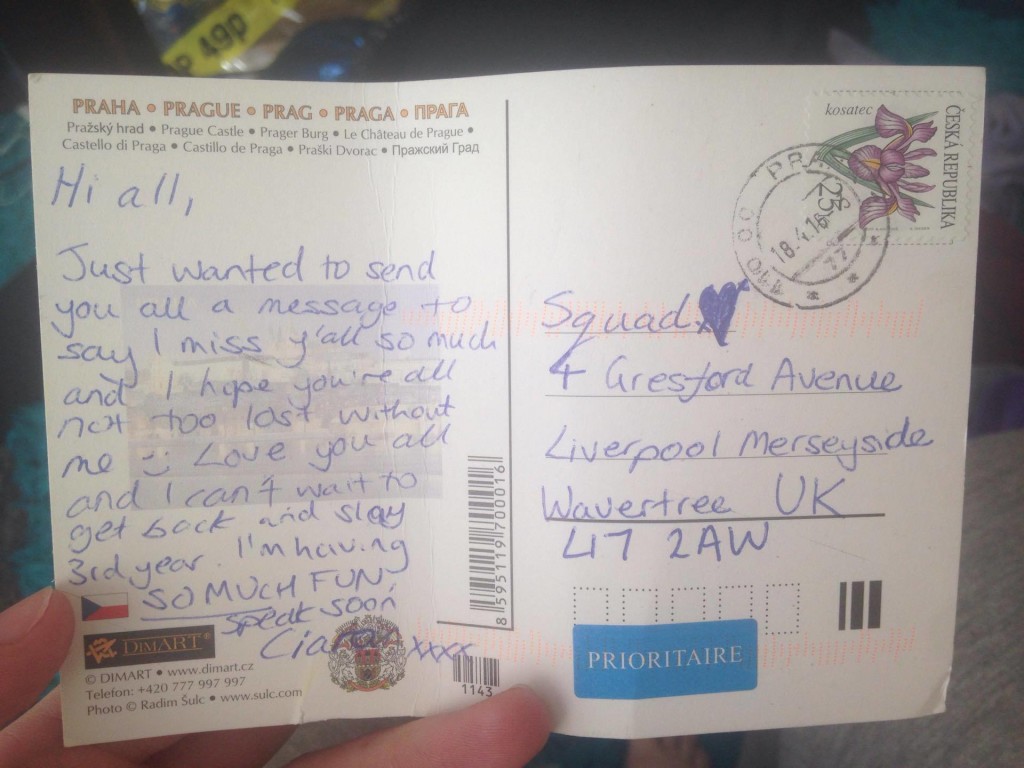 49p
PRAHA • PRAGUE • PRAG • PRAGA • ПРАГА
Pražský hrad • Prague Castle • Prager Burg • Le Château de Prague •
Castello di Praga • Castillo de Praga • Praški Dvorac • Пражский Град
Hi all,
Just wanted to send
you all a message to
say I miss y'all so much
and I hope you're all
not too lost without
me :) Love you all
and I can't wait to
get back and slay
3rd year. I'm having
SO MUCH FUN,
speak soon
Ciaran xxxx
DIMART®
© DIMART • www.dimart.cz
Telefon: +420 777 997 997
Photo © Radim Šulc • www.sulc.com
8595119700016
1143
kosatec
ČESKÁ REPUBLIKA
18.4.16
77
Squad
4 Gresford Avenue
Liverpool Merseyside
Wavertree UK
L17 2AW
PRIORITAIRE